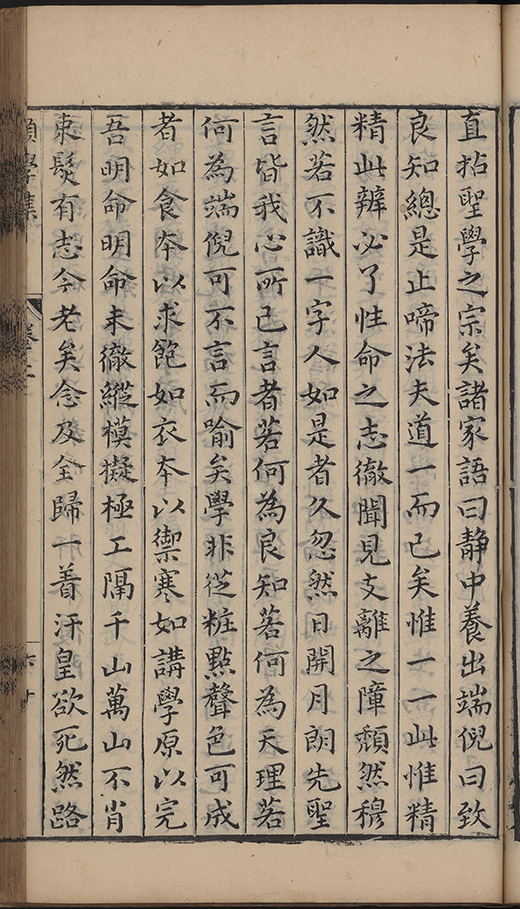 直拈聖學之宗矣諸家語曰靜中養出端倪曰致
良知總是止啼法夫道一而已矣惟一一此惟精
精此辨必了性命之志徹聞見支離之障頹然穆
然若不識一字人如是者久忽然日開月朗先聖
言皆我心所已言者若何為良知若何為天理若
何為端倪可不言而喻矣學非從粧點聲色可成
者如食本以求飽如衣本以禦寒如講學原以完
吾明命明命未徹縱模擬極工隔千山萬山不肖
束髮有志今老矣念及全歸一着汗皇欲死然路
學集
卷二